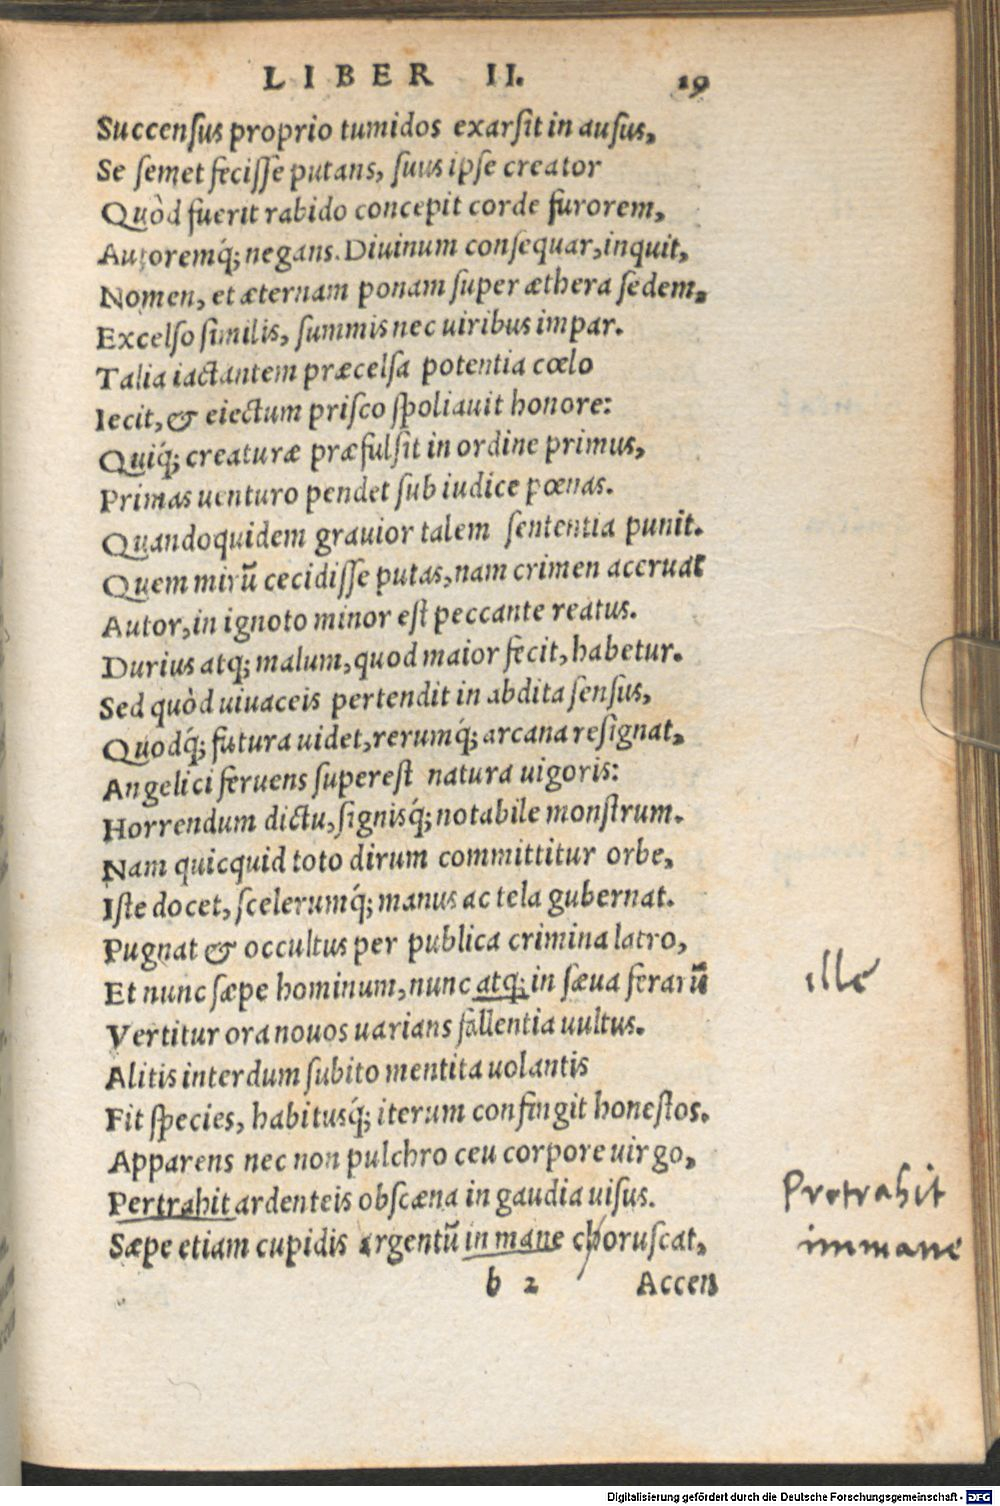 LIBER II. 19
Succensus proprio tumidos exarsit in ausus,
Se semet fecisse putans, suus ipse creator
Quòd fuerit rabido concepit corde furorem,
Autoremq́; negans. Diuinum consequar, inquit,
Nomen, et æternam ponam super æthera sedem,
Excelso similis, summis nec uiribus impar.
Talia iactantem præcelsa potentia cœlo
Iecit, & eiectum prisco spoliauit honore:
Quiq́; creaturæ præfulsit in ordine primus,
Primas uenturo pendet sub iudice pœnas.
Quandoquidem grauior talem sententia punit.
Quem mirū cecidisse putas, nam crimen aceruat
Autor, in ignoto minor est peccante reatus.
Durius atq; malum, quod maior fecit, habetur.
Sed quòd uiuaceis pertendit in abdita sensus,
Quodq́; futura uidet, rerumq́; arcana resignat,
Angelici feruens superest natura uigoris:
Horrendum dictu, signisq́; notabile monstrum.
Nam quicquid toto dirum committitur orbe,
Iste docet, scelerumq́; manus ac tela gubernat.
Pugnat & occultus per publica crimina latro,
Et nunc sæpe hominum, nunc atq; in sæua ferarū ille
Vertitur ora nouos uarians fallentia uultus.
Alitis interdum subito mentita uolantis
Fit species, habitusq́; iterum confingit honestos.
Apparens nec non pulchro ceu corpore uirgo,
Pertrahit ardenteis obscæna in gaudia uisus. Protrahit
Sæpe etiam cupidis argentū in mane choruscat, immane
b 2 Accen
Digitalisierung gefördert durch die Deutsche Forschungsgemeinschaft - DFG